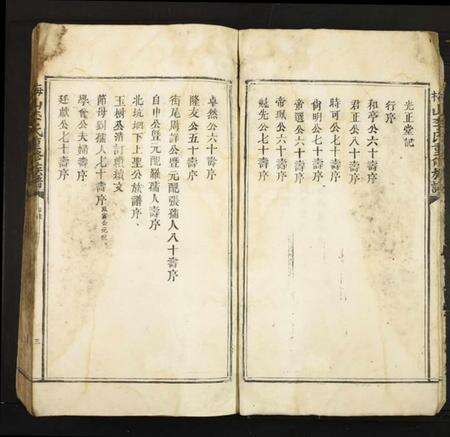 光正堂記
行序
和亭公六十壽序
君正公八十壽序
時可公七十壽序
向明公七十壽序
帝選公六十壽序
帝珮公六十壽序
冠先公七十壽序
卓然公六十壽序
隆友公五十壽序
衡尾周詳公暨元配張孺人八十壽序
自申公暨元配羅孺人壽序
北坑垇下上聖公族譜序
玉樹吳清訂續頌文
節母劉孺人七十壽序
學奮公夫婦壽序
廷獻公七十壽序
三